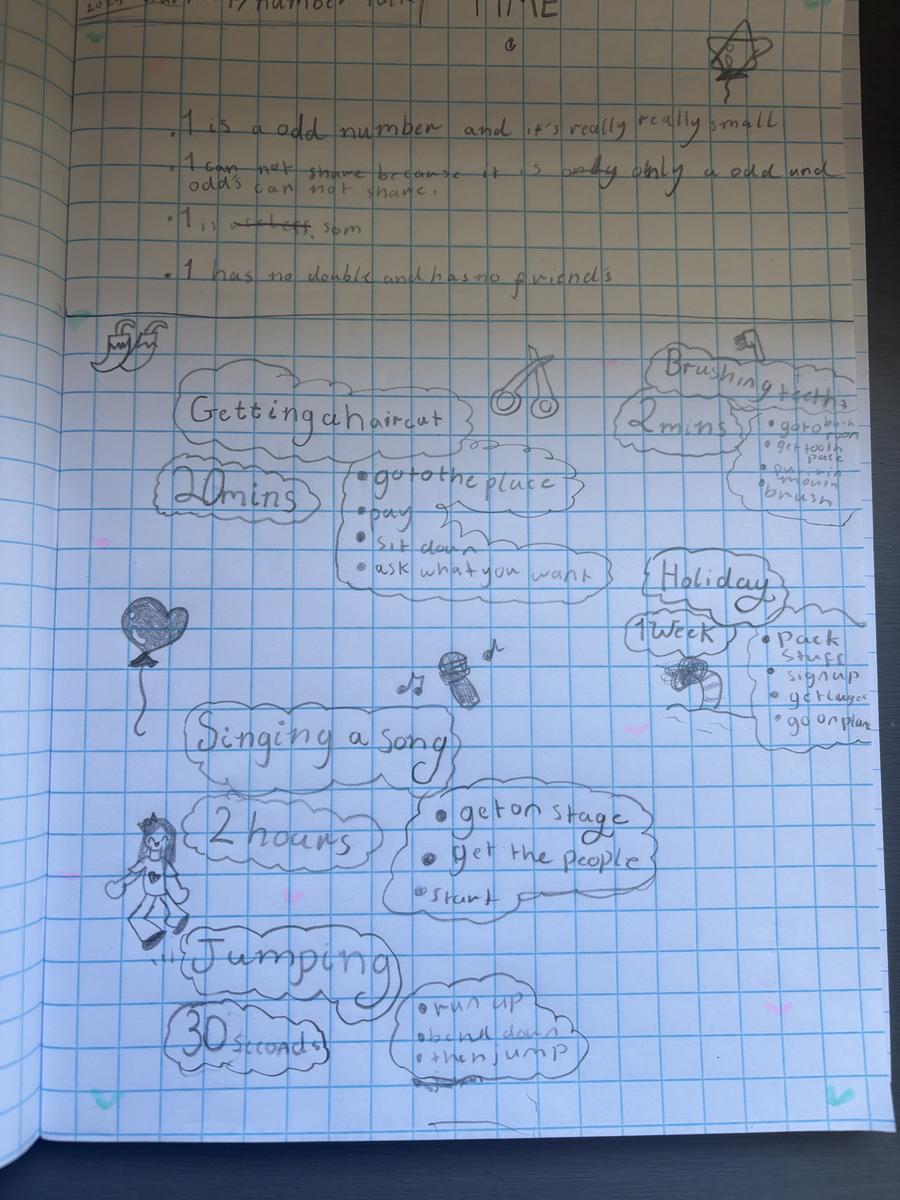 number
TIME
.1 is a odd number and it's really really small
.1 can not share because it is only only a odd and
odd's can not share.
.1 is useless. som
.1 has no double and has no friend's
Getting a haircut
20mins
• go to the place
• pay
• sit down
• ask what you want
Brushing teeth
2mins
• go to bath
room
• get tooth
paste
• put it in
mouth
• brush
Holiday
1 Week
• Pack
Stuff
• sign up
• get
• go on plane
Singing a song
2 hours
• get on stage
• get the people
• start
Jumping
30 Seconds
• run up
• bend down
• then jump